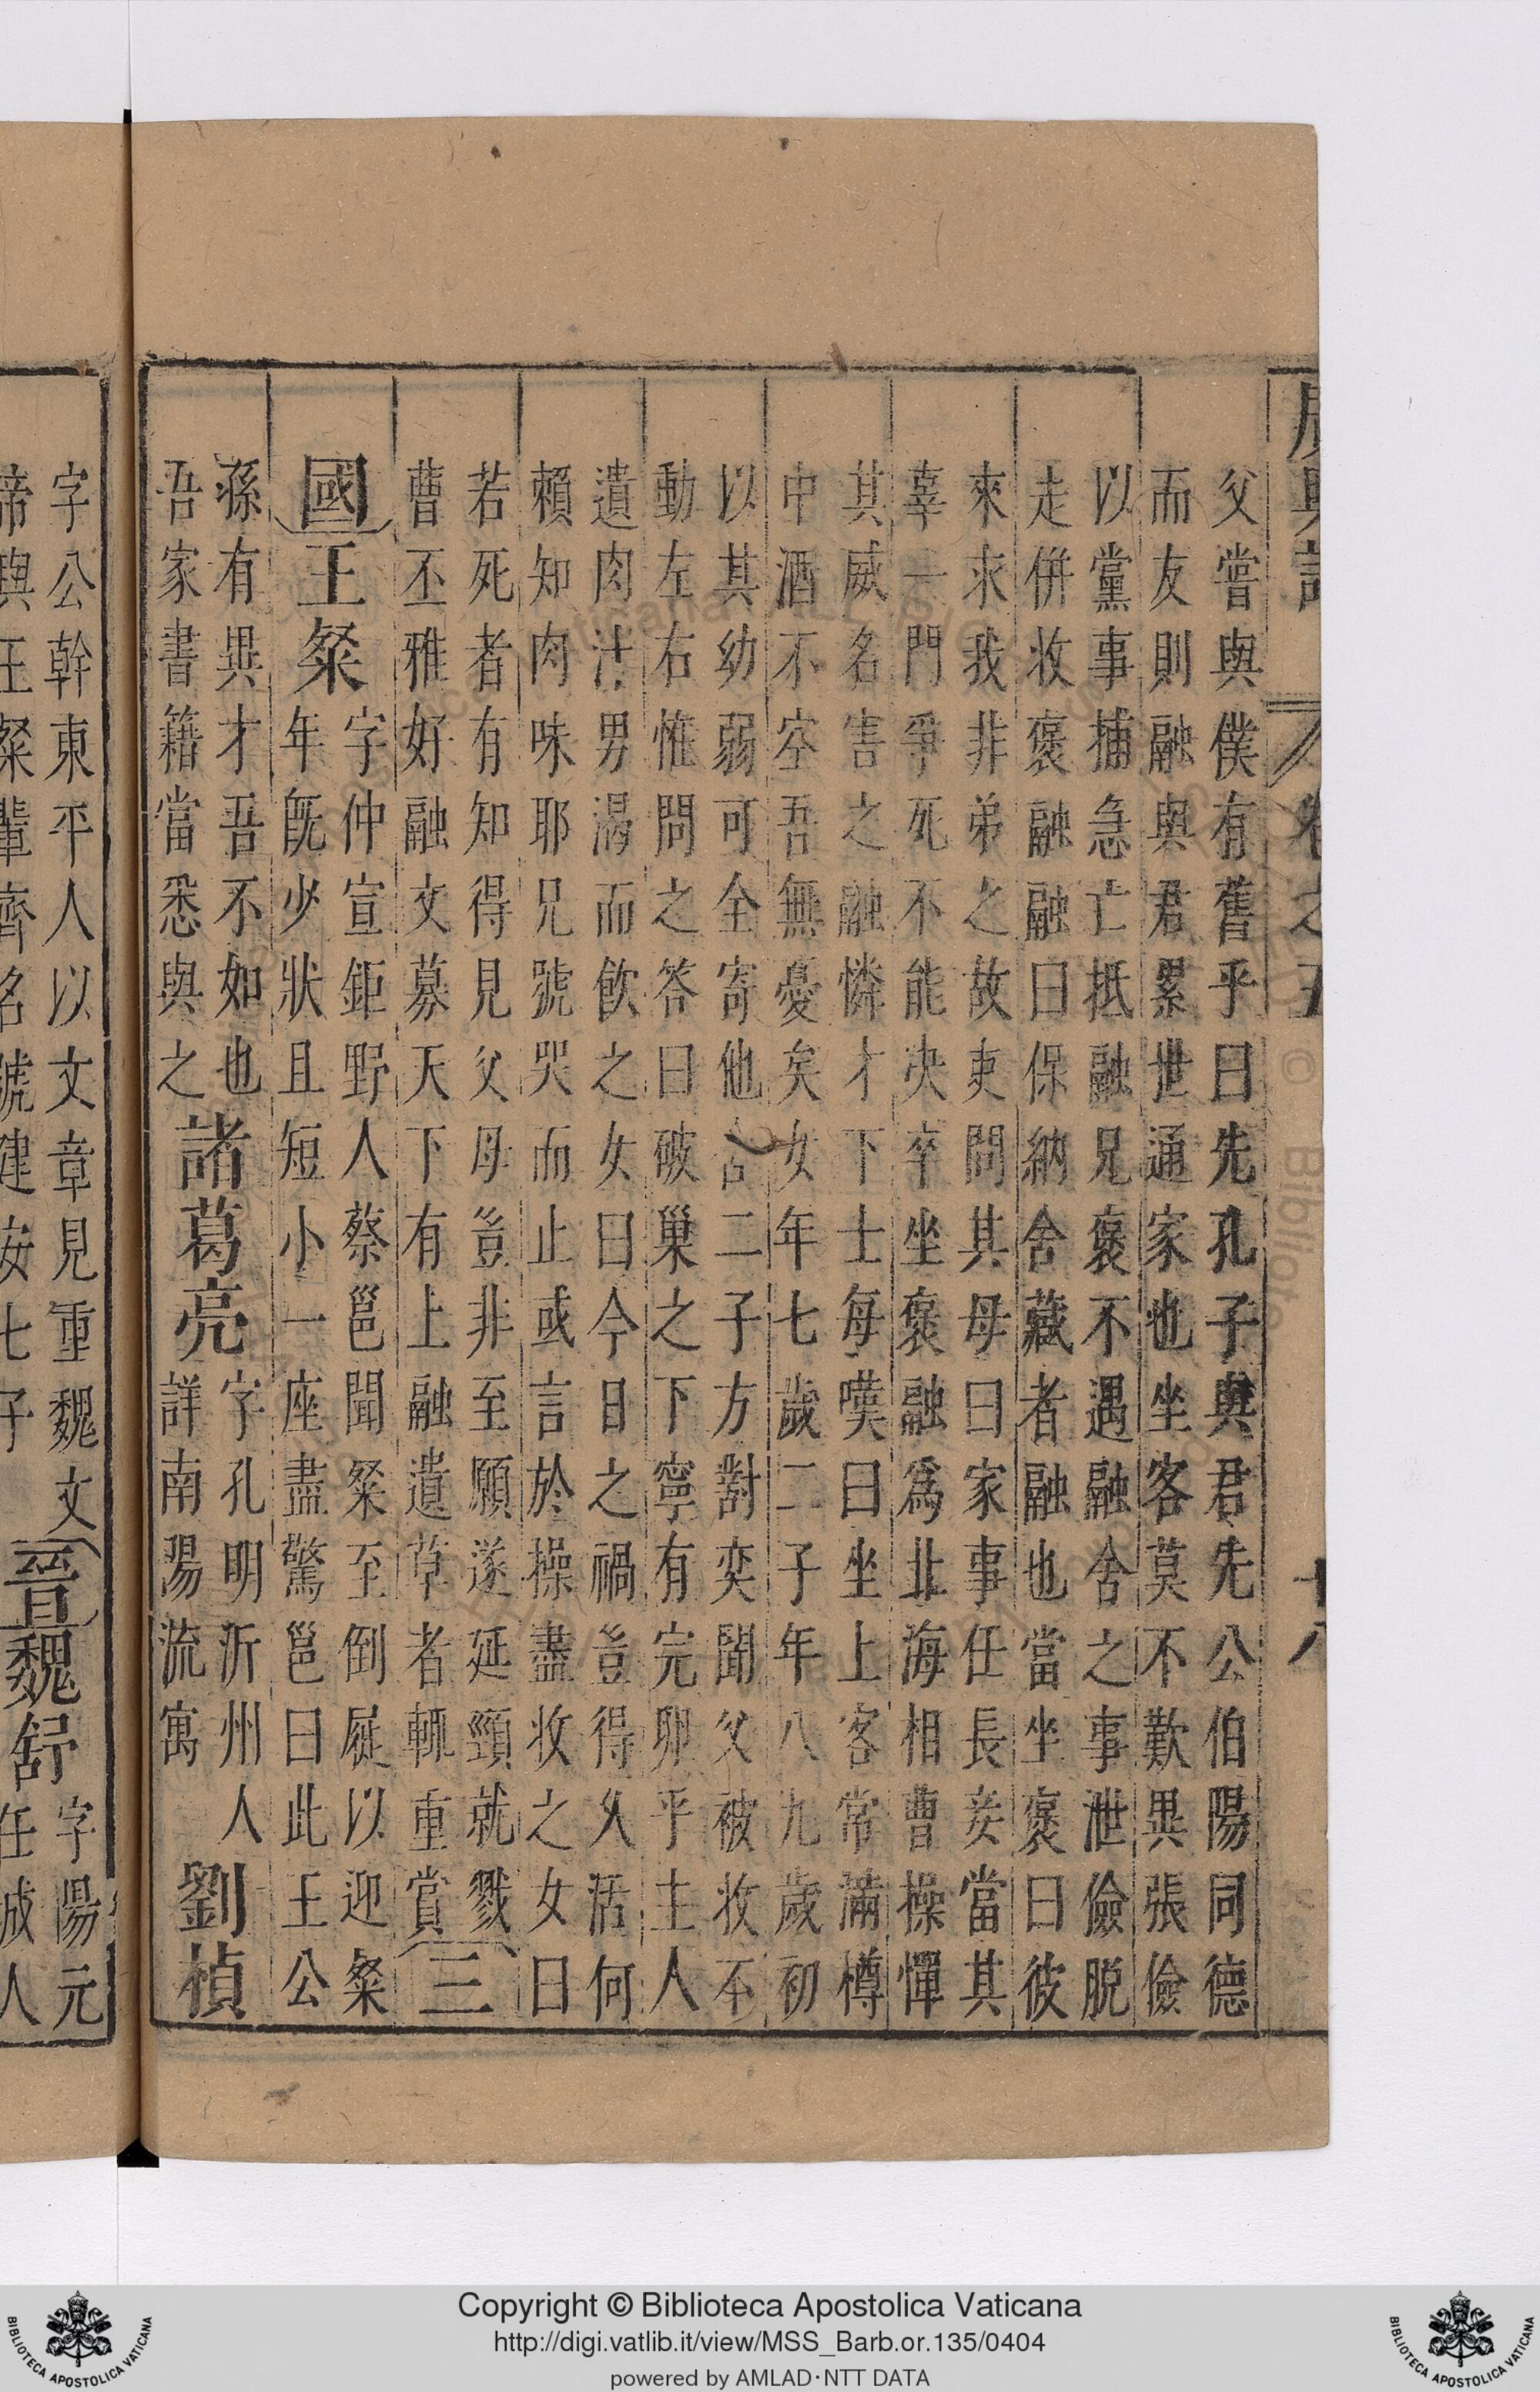 廣輿記
卷之五
十八
父嘗與僕有舊乎曰先孔子與君先公伯陽同德
而友則融與君累世通家也坐客莫不歎異張儉
以黨事捕急亡抵融兄褒不遇融舍之事泄儉脫
走併收褒融融曰保納舍藏者融也當坐褒曰彼
來求我非弟之故吏問其母曰家事任長妾當其
辜一門爭死不能决卒坐褒融為北海相曹操憚
其威名害之融憐才下士每嘆曰坐上客常滿樽
中酒不空吾無憂矣女年七歲二子年八九歲初
以其幼弱可全寄他舍二子方對奕聞父被收不
動左右惟問之答曰破巢之下寧有完卵乎主人
遺肉汁男渴而飲之女曰今日之禍豈得久活何
賴知肉味耶兄號哭而止或言於操盡收之女曰
若死者有知得見父母豈非至願遂延頸就戮
曹丕雅好融文募天下有上融遺草者輒重賞
三
國
王粲
字仲宣鉅野人蔡邕聞粲至倒屣以迎粲
年既少狀且短小一座盡驚邕曰此王公
孫有異才吾不如也
吾家書籍當悉與之
諸葛亮
字孔明沂州人
詳南陽流寓
劉楨
字公幹東平人以文章見重魏文
帝與王粲輩齊名號建安七子
晉
魏舒
字陽元
任城人
Copyright © Biblioteca Apostolica Vaticana
http://digi.vatlib.it/view/MSS_Barb.or.135/0404
powered by AMLAD·NTT DATA
BIBLIOTECA APOSTOLICA VATICANA
BIBLIOTECA APOSTOLICA VATICANA